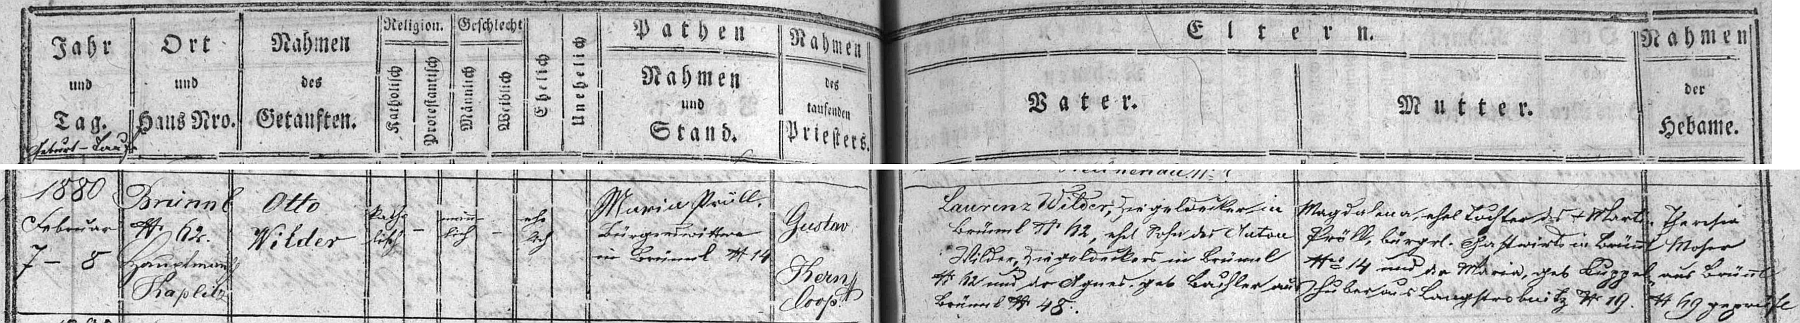 Jahr
und
Tag.
Geburt – Taufe
Ort
und
Haus Nro.
Nahmen
des
Getauften.
Religion.
Katholisch
Protestantisch
Geschlecht
Männlich
Weiblich
Ehelich
Unehelich
Pathen
Nahmen
und
Stand.
Nahmen
des
taufenden
Priesters.
Eltern.
Vater.
Mutter.
Nahmen
und
der
Hebame.
1880
Februar
7 – 8
Brünnl
№ 62.
Hauptmansch
Kaplitz
Otto
Wilder
katho
lisch
–
män
lich
–
ehe
lich
–
Maria Pröll,
Bürgerswittwe
in Brünnl № 14
Gustav
Kern
Coop.
Laurenz Wilder, Ziegeldecker in
Brünnl № 62, ehel. Sohn des Anton
Wilder, Ziegeldeckers in Brünnl
№ 62 und der Agnes, geb. Bachler aus
Brünnl № 48.
Magdalena, ehel. Tochter des † Mart.
Pröll, bürgl. Gastwirts in Brünnl
№ 14 und der Maria, geb. Kuppel
huber aus Langstrobnitz № 19.
Theresia
Moser
aus Brünnl
№ 69 geprüfte